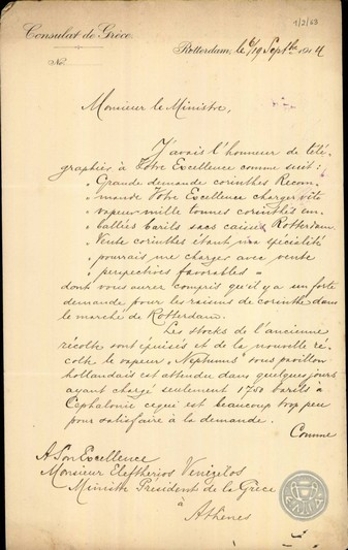 1/2/63
Consulat de Grèce.
Rotterdam, le 6/19 Septbre 1914
No.
Monsieur le Ministre,
J'avais l'honneur de télé-
graphier à Votre Excellence comme suit:
"Grande demande corinthes Recom-
"mande Votre Excellence charger vite
"vapeur mille tonnes corinthes em-
"ballées barils sacs caisses Rotterdam.
"Vente corinthes étant ma spécialité
"pourrais me charger avec vente
"perspectives favorables"
dont vous aurez compris qu'il y a un forte
demande pour les raisins de corinthe dans
le marché de Rotterdam.
Les stocks de l'ancienne
récolte sont épuisés et de la nouvelle ré-
colte le vapeur "Neptunus" sous pavillon
hollandais est attendu dans quelques jours
ayant chargé seulement 1750 barils à
Céphalonie ce qui est beaucoup trop peu
pour satisfaire à la demande.
Comme
A Son Excellence
Monsieur Eleftherios Venizelos
Ministre Président de la Grèce
à
Athènes